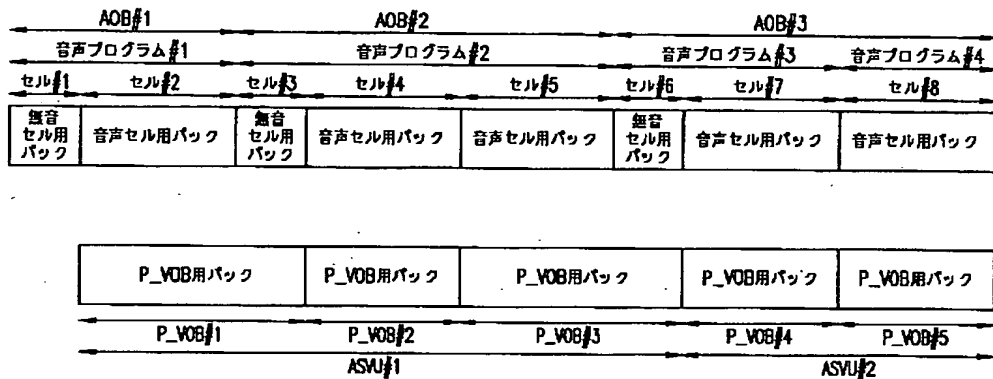 AOB#1 AOB#2 AOB#3
音声プログラム#1 音声プログラム#2 音声プログラム#3 音声プログラム#4
セル#1 セル#2 セル#3 セル#4 セル#5 セル#6 セル#7 セル#8
無音
セル用
パック
音声セル用パック
無音
セル用
パック
音声セル用パック
音声セル用パック
無音
セル用
パック
音声セル用パック
音声セル用パック
P_VOB用パック P_VOB用パック P_VOB用パック P_VOB用パック P_VOB用パック
P_VOB#1 P_VOB#2 P_VOB#3 P_VOB#4 P_VOB#5
ASVU#1 ASVU#2